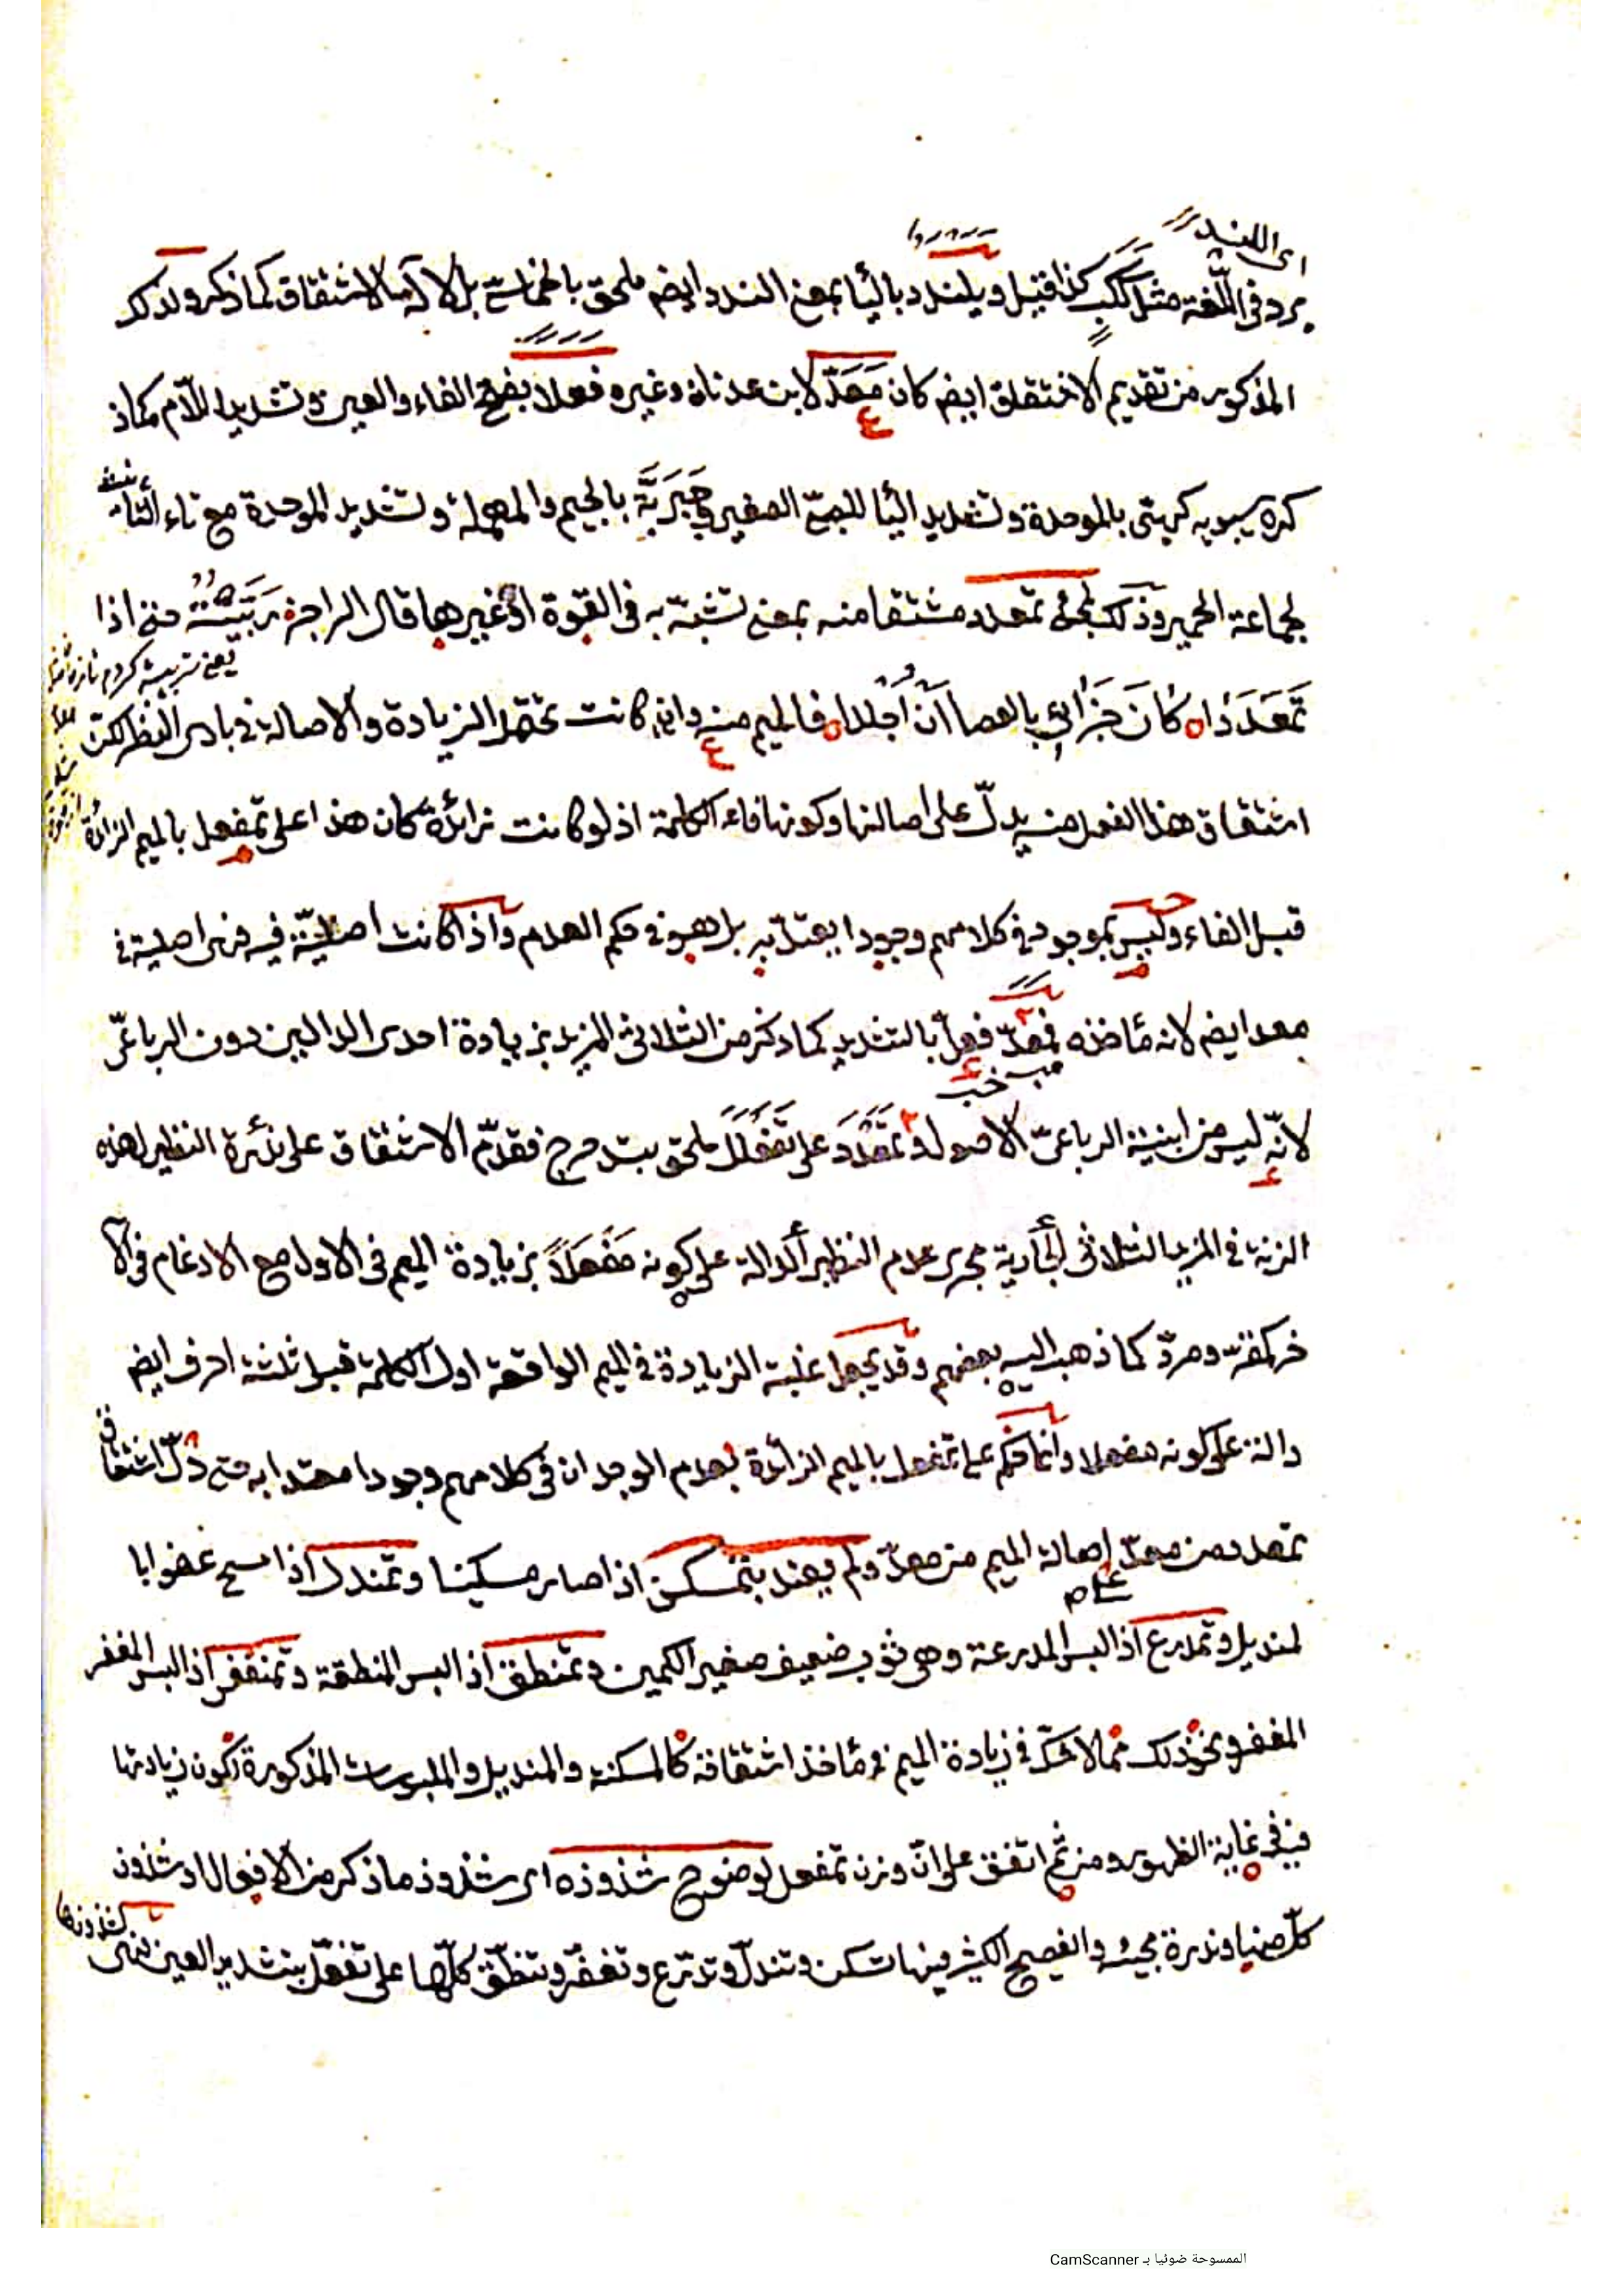 اى اللندد
يرد فى اللّغة مثل ككب كذا قيل ويلندد بالياء بمعنى الندد ايضم ملحق بالخماسى بدلالة الاشتقاق كما ذكر ولذلك
المذكور من تقديم الاشتقاق ايضم كان مَعَدّ لابن عدنان وغيره فعلا بفتح الفاء والعين وتشديد اللّام كما ذ
كره سيبويه كربتى بالموحدة وتشديد اليا للجمع الصغير وجَرَبَّة بالجيم والمهملة وتشديد الموحدة مع تاء التأنيث
لجماعة الحمير وذلك لمجئ تمعدد مشتقا منه بمعنى تشبّه به فى القوة او غيرها قال الراجز ربّيته حتى اذا
يعنى تربيت كردم
تَمَعْدَدَا كَانَ جَزَائِي بالعصا اَنْ اُجْلدا فالميم منه وان كانت تحتمل الزيادة والاصالة فى بادى النظر لكن
اشتقاق هذا الفعل منه يدلّ على اصالتها وكونها فاء الكلمة اذ لو كانت زائدة كان هذا على تمفعل بالميم الزائدة
قبل الفاء وليس بموجود فى كلامهم وجودا يعتدّ به بل هو فى حكم العدم واذا كانت اصليّة فيه فهى اصلية فى
معد ايضم لانه مأخذه فمعدّ فعلّ بالتشديد كما ذكر من الثلاثى المزيد بزيادة احدى الدالين دون الرباعىّ
لانّه ليس من ابنية الرباعىّ الاصول وتمعْدَدَ على تَفَعْلَلَ ملحق بتدحرج فقدّم الاشتقاق على ندرة النظير لهذه
الزنة فى المزيد الثلاثى الجارية مجرى عدم النظير الدالة على كونه مَفْعَلاً بزيادة الميم فى الاول مع الادغام فى الآ
خر كمفرّ ومردّ كما ذهب اليه بعضهم وقد يجعل غلبة الزيادة فى الميم الواقعة اول الكلمة قبل ثلثة احرف ايضم
دالة على كونه مفعلا وانما حكم على تمفعل بالميم الزائدة بعدم الوجدان فى كلامهم وجودا معتدا به حتى دلّ اشتقاق
تمعدد من معدّ اصالة الميم من معدّ ولم يعتد بتمسكن اذا صار مسكينا وتمندل اذا مسح عضوا با
لمنديل وتمدرع اذا لبس المدرعة وهى ثوب ضعيف صغير الكمين وتمنطق اذا لبس المنطقة وتمغفر اذا لبس المغفر
المغفر ونحو ذلك ممّا لا شكّ فى زيادة الميم فى مأخذ اشتقاقه كالمسكنة والمنديل والملبوسات المذكورة لكون زيادتها
فيه فى غاية الظهور ومن ثم اتفق على انّ وزن تمفعل لوضوح شذوذه اى شذوذ ما ذكر من الافعال او شذوذ
كلّ منها وندرة مجيئه والفصيح الكثير فيها تسكن وتندلّ وتدرّع وتغفّر وتنطّق كلّها على تفعّل بتشديد العين فهى
لشذوذها
الممسوحة ضوئيا بـ CamScanner